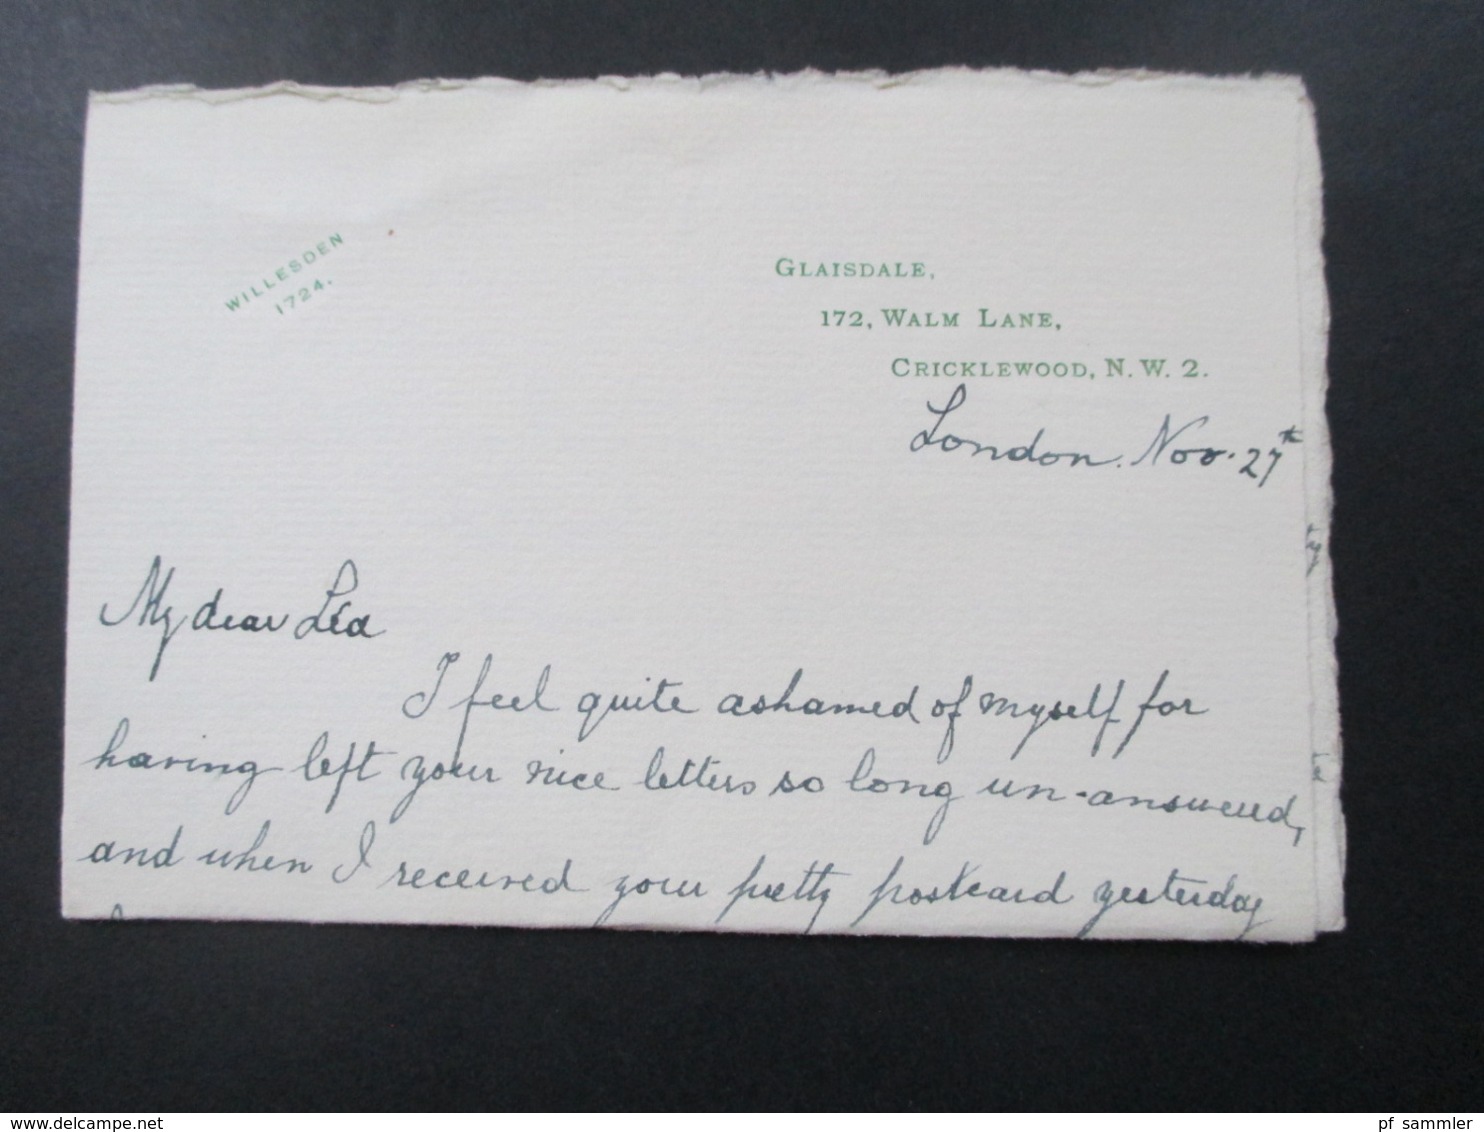 WILLESDEN
1724.
GLAISDALE,
172, WALM LANE,
CRICKLEWOOD, N. W. 2.
London. Nov. 27th
My dear Léa
I feel quite ashamed of myself for
having left your nice letters so long un-answered,
and when I received your pretty postcard yesterday
www.delcampe.net
pf_sammler